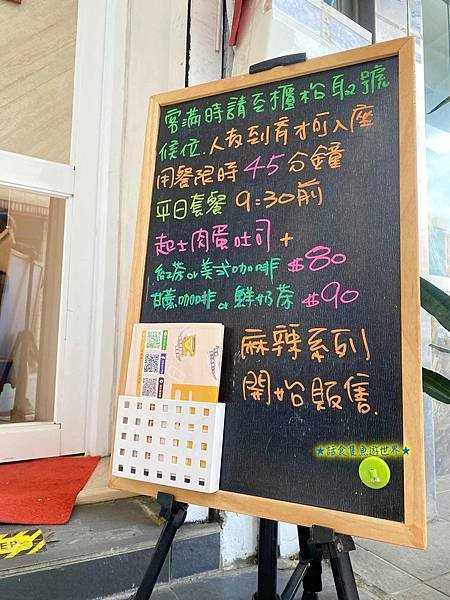 客滿時請至櫃枱取號
候位.人友到齊才可入座
用餐限時45分鐘
平日套餐 9:30前
起士肉蛋吐司+
紅茶or美式咖啡 $80
甘蔗咖啡 or 鮮奶茶 $90
麻辣系列
開始販售.